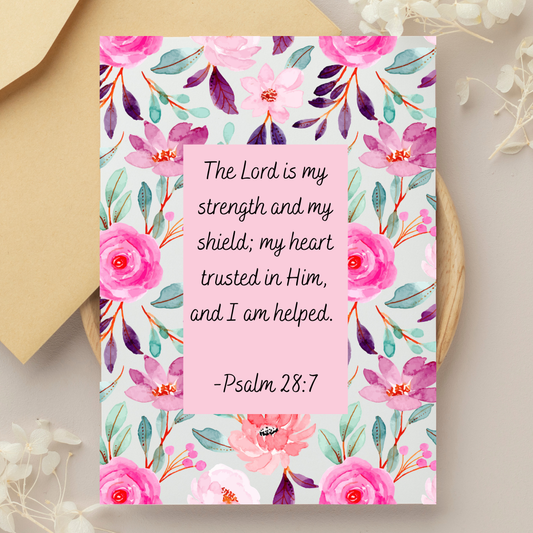 The Lord is my
strength and my
shield; my heart
trusted in Him,
and I am helped.
-Psalm 28:7